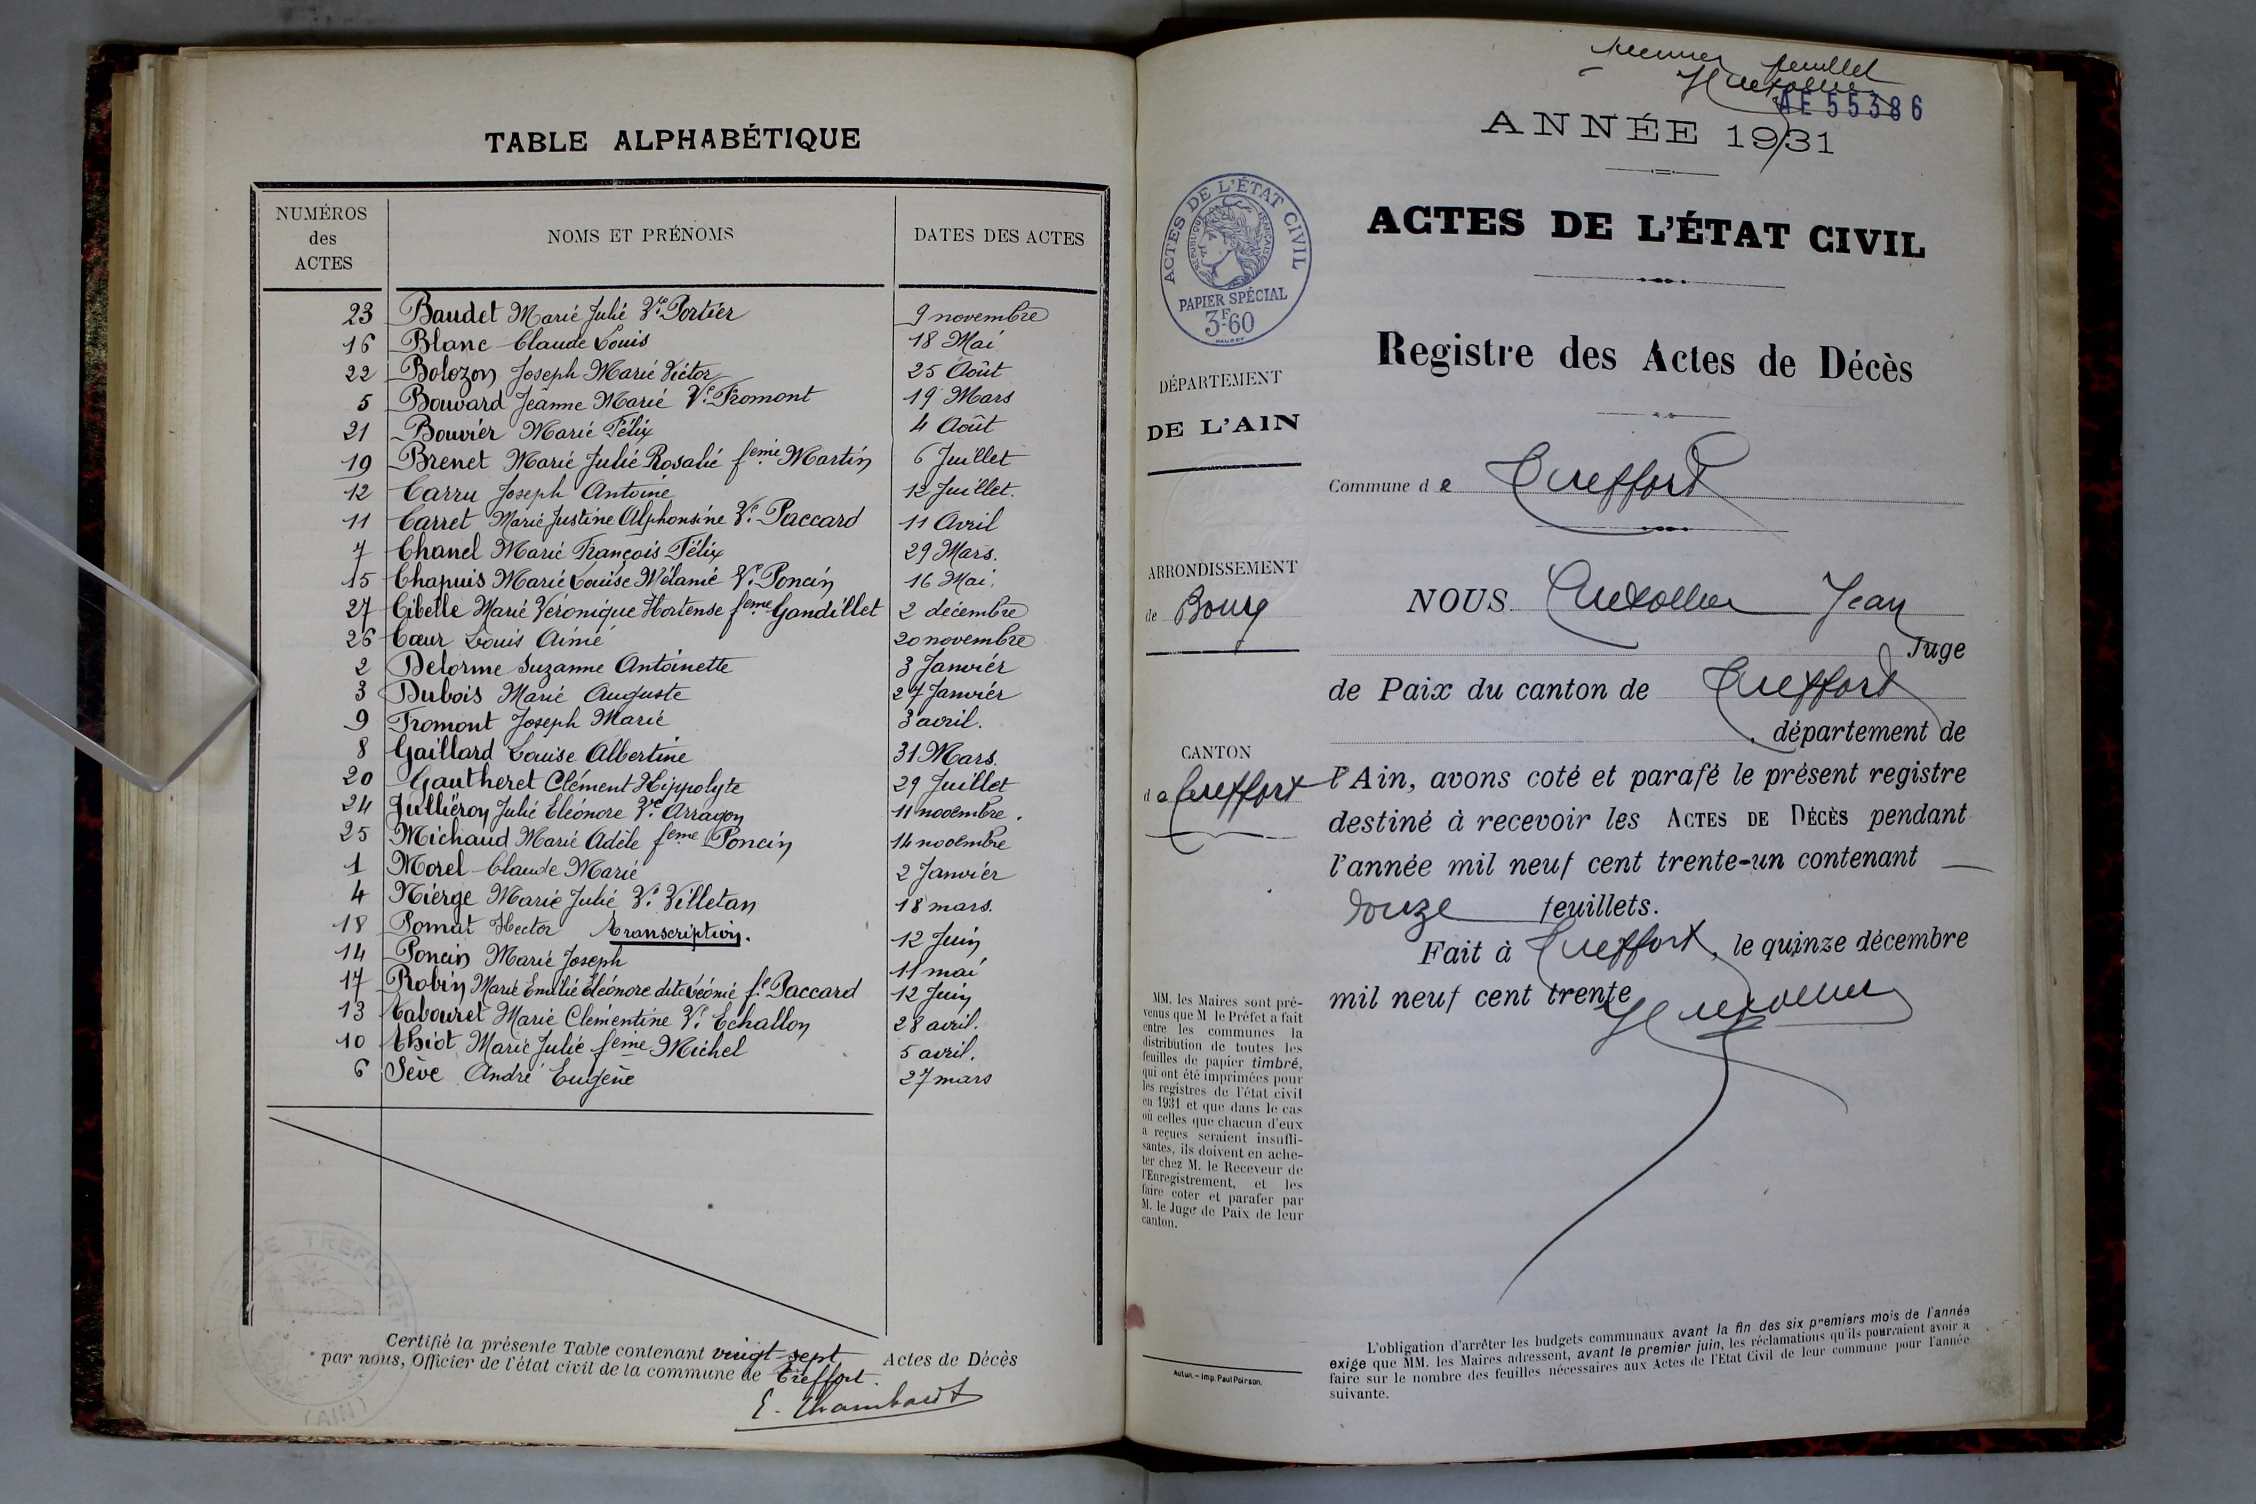 TABLE ALPHABÉTIQUE
NUMÉROS des ACTES NOMS ET PRÉNOMS DATES DES ACTES
23 Baudet Marie Julie Vve Portier 9 novembre
16 Blanc Claude Louis 18 Mai
22 Bolozon Joseph Marie Victor 25 Août
5 Bouvard Jeanne Marie Ve Fromont 19 Mars
21 Bouvier Marie Félix 4 Août
19 Brenet Marie Julie Rosalie feme Martin 6 Juillet
12 Carru Joseph Antoine 12 Juillet.
11 Carret Marie Justine Alphonsine Ve Paccard 11 Avril
7 Chanel Marie François Félix 29 Mars.
15 Chapuis Marie Louise Mélanie Ve Poncin 16 Mai.
27 Cibelle Marie Véronique Hortense feme Gandillet 2 décembre
26 Cœur Louis Aimé 20 novembre
2 Delorme Suzanne Antoinette 3 Janvier
3 Dubois Marie Auguste 27 Janvier
9 Fromont Joseph Marie 3 avril.
8 Gaillard Louise Albertine 31 Mars.
20 Gautheret Clément Hippolyte 29 Juillet
24 Julliéron Julie Eléonore Ve Arragon 11 novembre.
25 Michaud Marie Adèle feme Poncin 14 novembre
1 Morel Claude Marie 2 Janvier
4 Nierge Marie Julie Ve Villetan 18 mars.
18 Pomat Hector transcription. 12 Juin
14 Poncin Marie Joseph 11 mai
17 Robin Marie Emilie Eléonore dite Léonie fe Paccard 12 Juin
13 Tabouret Marie Clémentine Ve Echallon 28 avril.
10 Thiot Marie Julie feme Michel 5 avril.
6 Sève André Eugène 27 mars
Certifié la présente Table contenant vingt-sept Actes de Décès
par nous, Officier de l'état civil de la commune de Treffort.
E. Chambard
DE TREFFORT
(AIN)
premier feuillet
AE 55386
ANNÉE 1931
ACTES DE L'ÉTAT CIVIL
RÉPUBLIQUE FRANÇAISE
PAPIER SPÉCIAL
3F60
ACTES DE L'ÉTAT CIVIL
Registre des Actes de Décès
DÉPARTEMENT
DE L'AIN
Commune de Treffort
ARRONDISSEMENT
de Bourg
CANTON
de Treffort
NOUS Jean
Juge
de Paix du canton de Treffort
, département de
l'Ain, avons coté et parafé le présent registre
destiné à recevoir les ACTES DE DÉCÈS pendant
l'année mil neuf cent trente-un contenant
douze feuillets.
Fait à Treffort, le quinze décembre
mil neuf cent trente
MM. les Maires sont pré-
venus que M le Préfet a fait
entre les communes la
distribution de toutes les
feuilles de papier timbré,
qui ont été imprimées pour
les registres de l'état civil
en 1931 et que dans le cas
où celles que chacun d'eux
a reçues seraient insuffi-
santes, ils doivent en ache-
ter chez M. le Receveur de
l'Enregistrement, et les
faire coter et parafer par
M. le Juge de Paix de leur
canton.
Autun. - Imp. Paul Poirson.
L'obligation d'arrêter les budgets communaux avant la fin des six premiers mois de l'année
exige que MM. les Maires adressent, avant le premier juin, les réclamations qu'ils pourraient avoir à
faire sur le nombre des feuilles nécessaires aux Actes de l'Etat Civil de leur commune pour l'année
suivante.